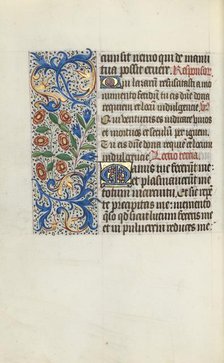 cum sit nemo qui de manu
tua possit eruere. Responsor.
Qui lazarum resuscitasti a mo
numento fetidum tu eis dne dona
requiem et locum indulgencie. V.
Qui venturus es iudicare vivos
et mortuos et seculum per ignem.
tu eis dne dona requiem et locum
indulgencie. Lectio tercia.
Manus tue fecerunt me:
et plasmaverunt me
totum in circuitu: et sic re
pente precipitas me: memento
queso quod sicut lutum feceris me
et in pulverem reduces me: